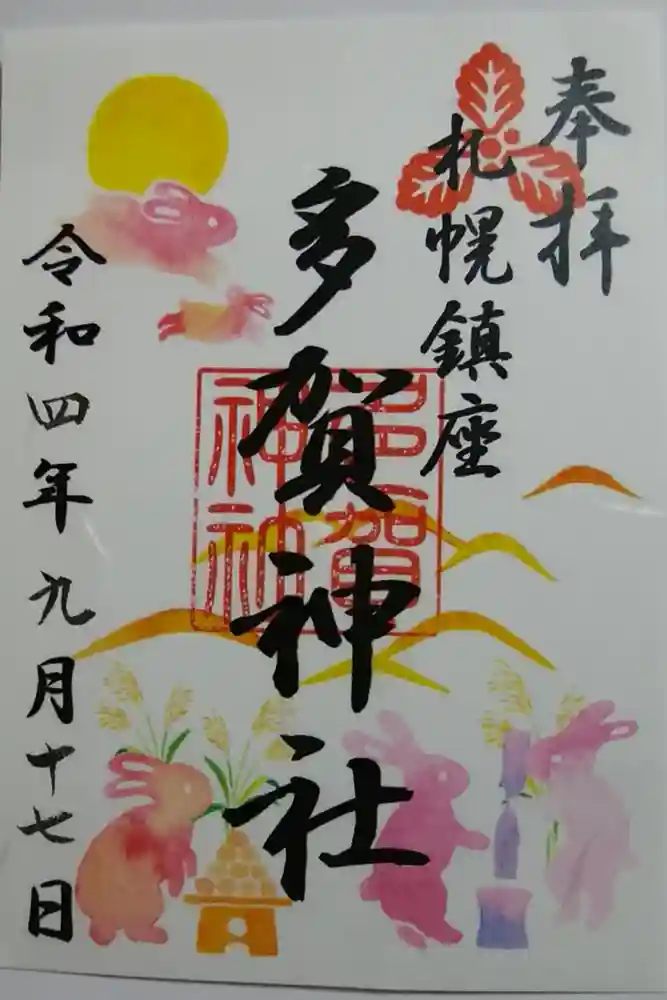 奉拝
札幌鎮座
多賀神社
多賀
神社
令和四年九月十七日